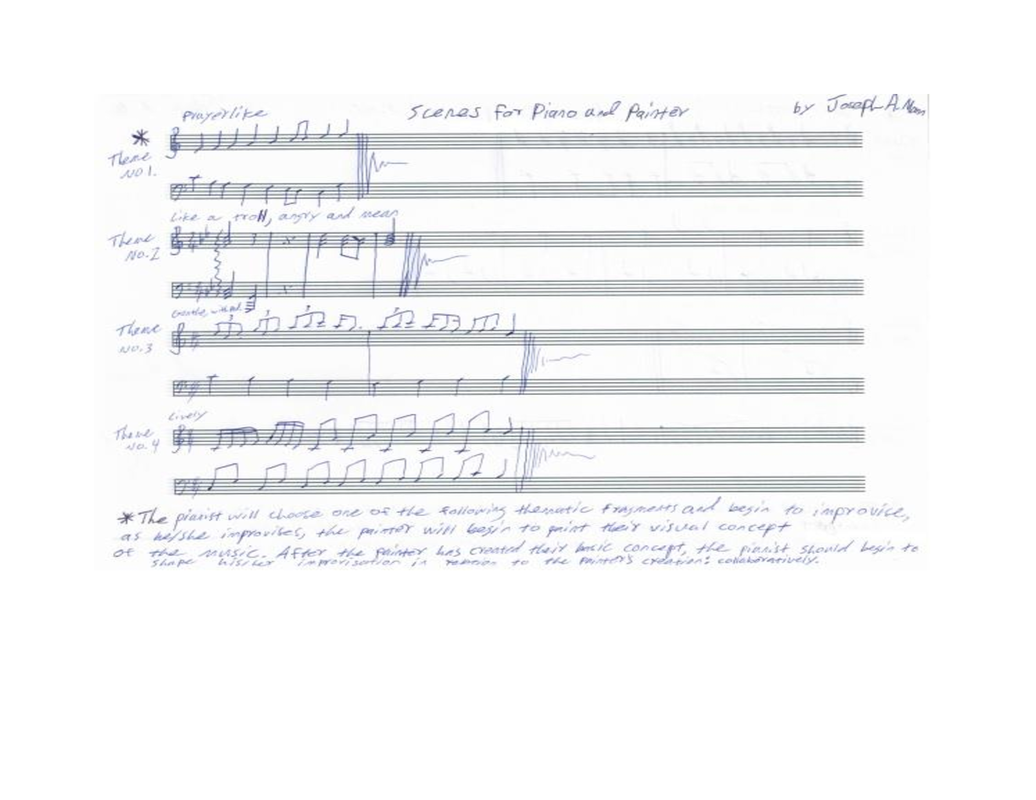 Prayerlike
Scenes for Piano and Painter
by Joseph A.
*
Theme
No 1.
Like a troll, angry and mean
Theme
No. 2
Theme
No. 3
Lively
Theme
No. 4
* The pianist will choose one of the following thematic fragments and begin to improvise,
as he/she improvises, the painter will begin to paint their visual concept
of the music. After the painter has created their basic concept, the pianist should begin to
shape his/her improvisation in relation to the painter's creation: collaboratively.